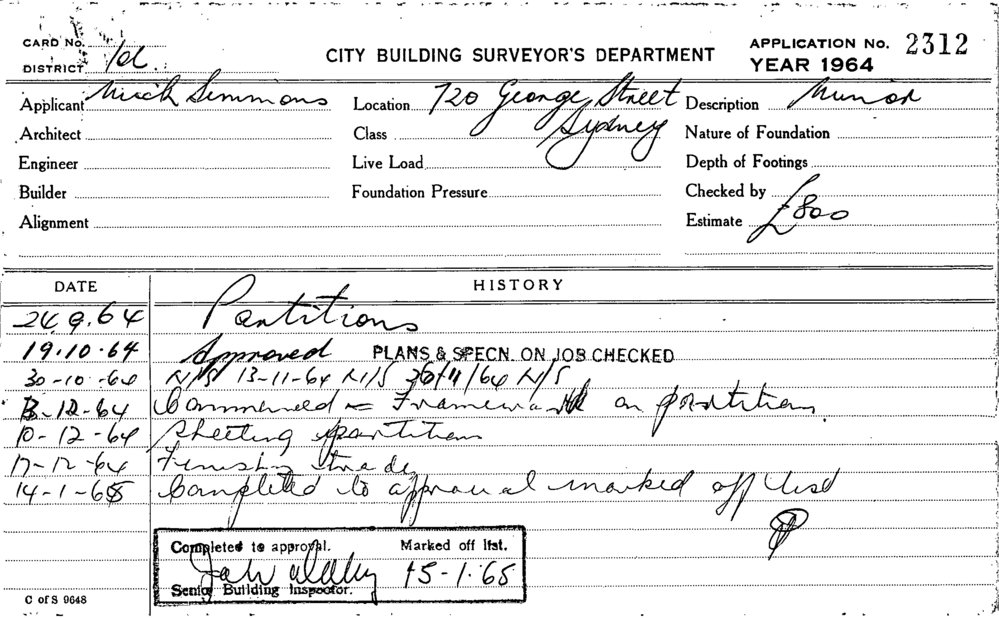 CARD No.
DISTRICT
CITY BUILDING SURVEYOR'S DEPARTMENT
APPLICATION No. 2312
YEAR 1964
Applicant Mick Simmons Location 720 George Street Description Minor
Sydney
Architect Class Nature of Foundation
Engineer Live Load Depth of Footings
Builder Foundation Pressure Checked by
Alignment Estimate £800
DATE HISTORY
24.9.64 Partitions
19.10.64 Approved PLANS & SPECN. ON JOB CHECKED
30-10-64 N/S 13-11-64 N/S 26/11/64 N/S
3-12-64 Commenced = Framework on partitions
10-12-64 Sheeting partitions
17-12-64 Finishing trades
14-1-65 Completed to approval marked off list
Completed to approval. Marked off list.
15-1-65
Senior Building Inspector.
C of S 9648